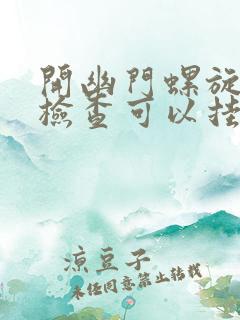 開幽門螺旋
檢查可以挂
涼豆子
未经同意禁止转载